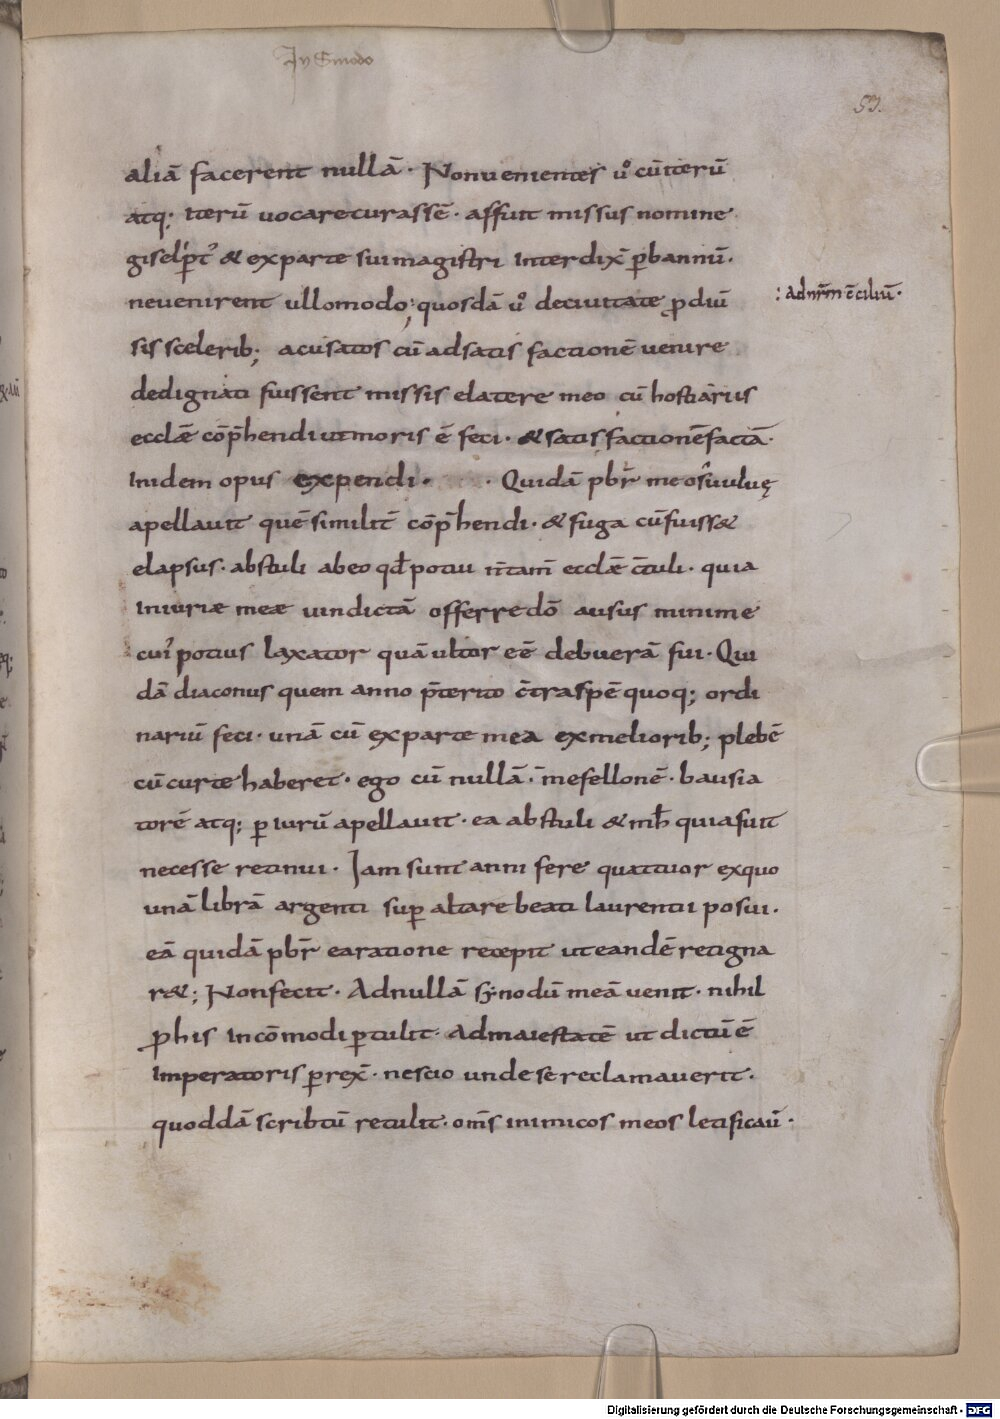 In Sinodo
51.
aliā facerent nullā. Non uenientes ůo cū iterū
atq; iterū uocare curassē. affuit missus nomine
giselp̄tꝰ & ex parte sui magistri interdix̄ p̱ bannū.
ne uenirent ullomodo; quosdā ůo de ciuitate p̱ diū
: ad nr̄m c̄ciliū.
sis sceleri b; acusatos cū ad satisfactionē uenire
dedignati fuissent missis e latere meo cū hostiariis
ecclæ cōp̄hendi ut moris ē feci. & satisfactionē factā.
in idem opus expendi. . Quidā pb̄r me os uuluę
apellauit quē similit̄ cōp̄hendi. & fuga cū fuiss&
elapsus. abstuli ab eo qd̄ potui n̄ tam̄ ecclæ c̄tuli. quia
iniuriæ meæ uindictā offerre dō ausus minime
cui potius laxator quā ultor eē debuerā fui. Qui
dā diaconus quem anno p̄terito c̄tra spē quoq; ordi
nariū feci. unā cū ex parte mea ex meliorib; plebē
cū curte haberet. ego cū nullā. īme fellonē. bausia
torē atq; p̱iurū apellauit. ea abstuli & mh̄ quia fuit
necesse retinui. Iam sunt anni fere quattuor ex quo
unā librā argenti sup̱ altare beati laurentii posui.
eā quidā pb̄r ea ratione recepit ut eandē retigna
r&; Non fecit. Ad nullā sẏnodū meā uenit. nihil
p̱ his incōmodi p̱tulit. Ad maiestatē ut dictū ē
imperatoris p̱rex̄. nescio unde se reclamauerit.
quoddā scribtū retulit. om̄s inimicos meos letificaū.
Digitalisierung gefördert durch die Deutsche Forschungsgemeinschaft - DFG